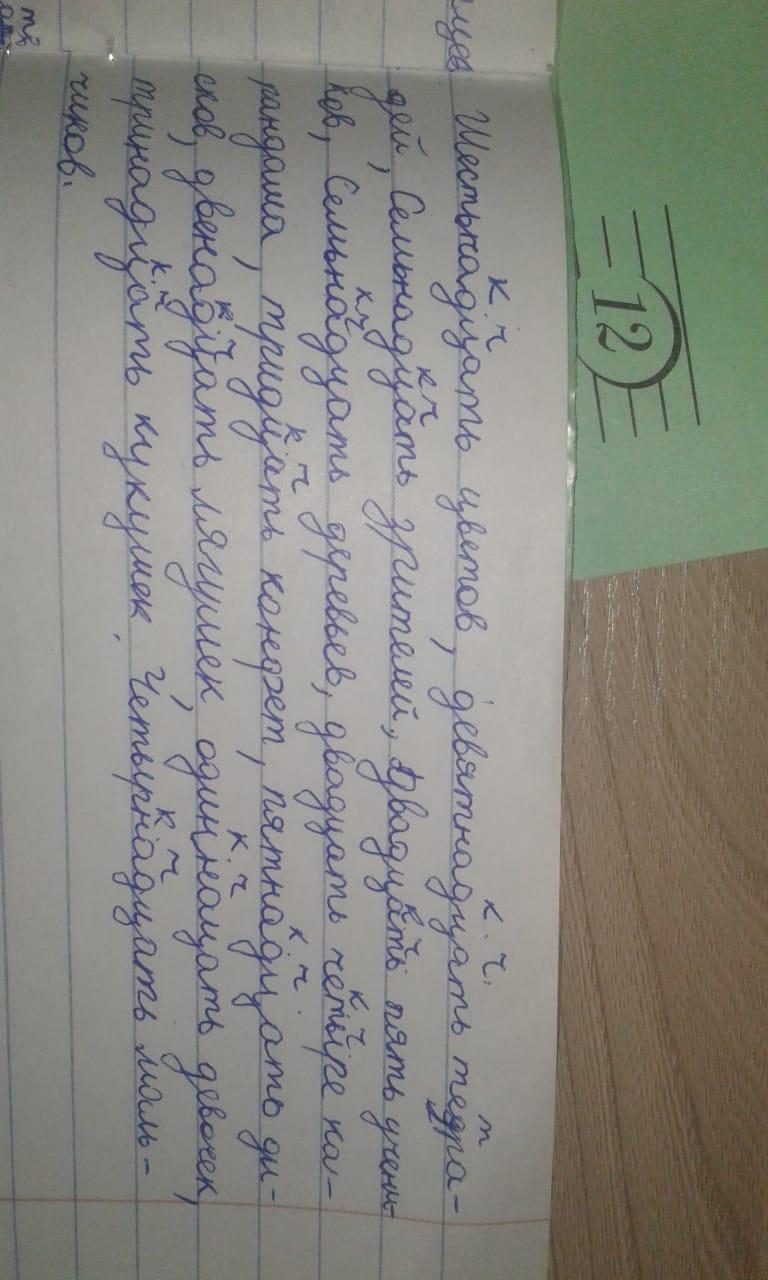 12
к. ч к. ч. т
Шестьнадцать цветов, девятнадцать тедра-
к ч к ч
дей, Семьнадцать зрителей, двадцать пять учени-
к ч к ч
ков, Семьнадцать деревьев, двадцать четыре ка-
к ч к. ч.
рандаша, тридцать конфет, пятнадцать ди-
к ч к. ч
сков, двенадцать лягушек, одиннацать девочек,
к. ч к ч
тринадцать кукушек. Четырнадцать маль-
чиков.